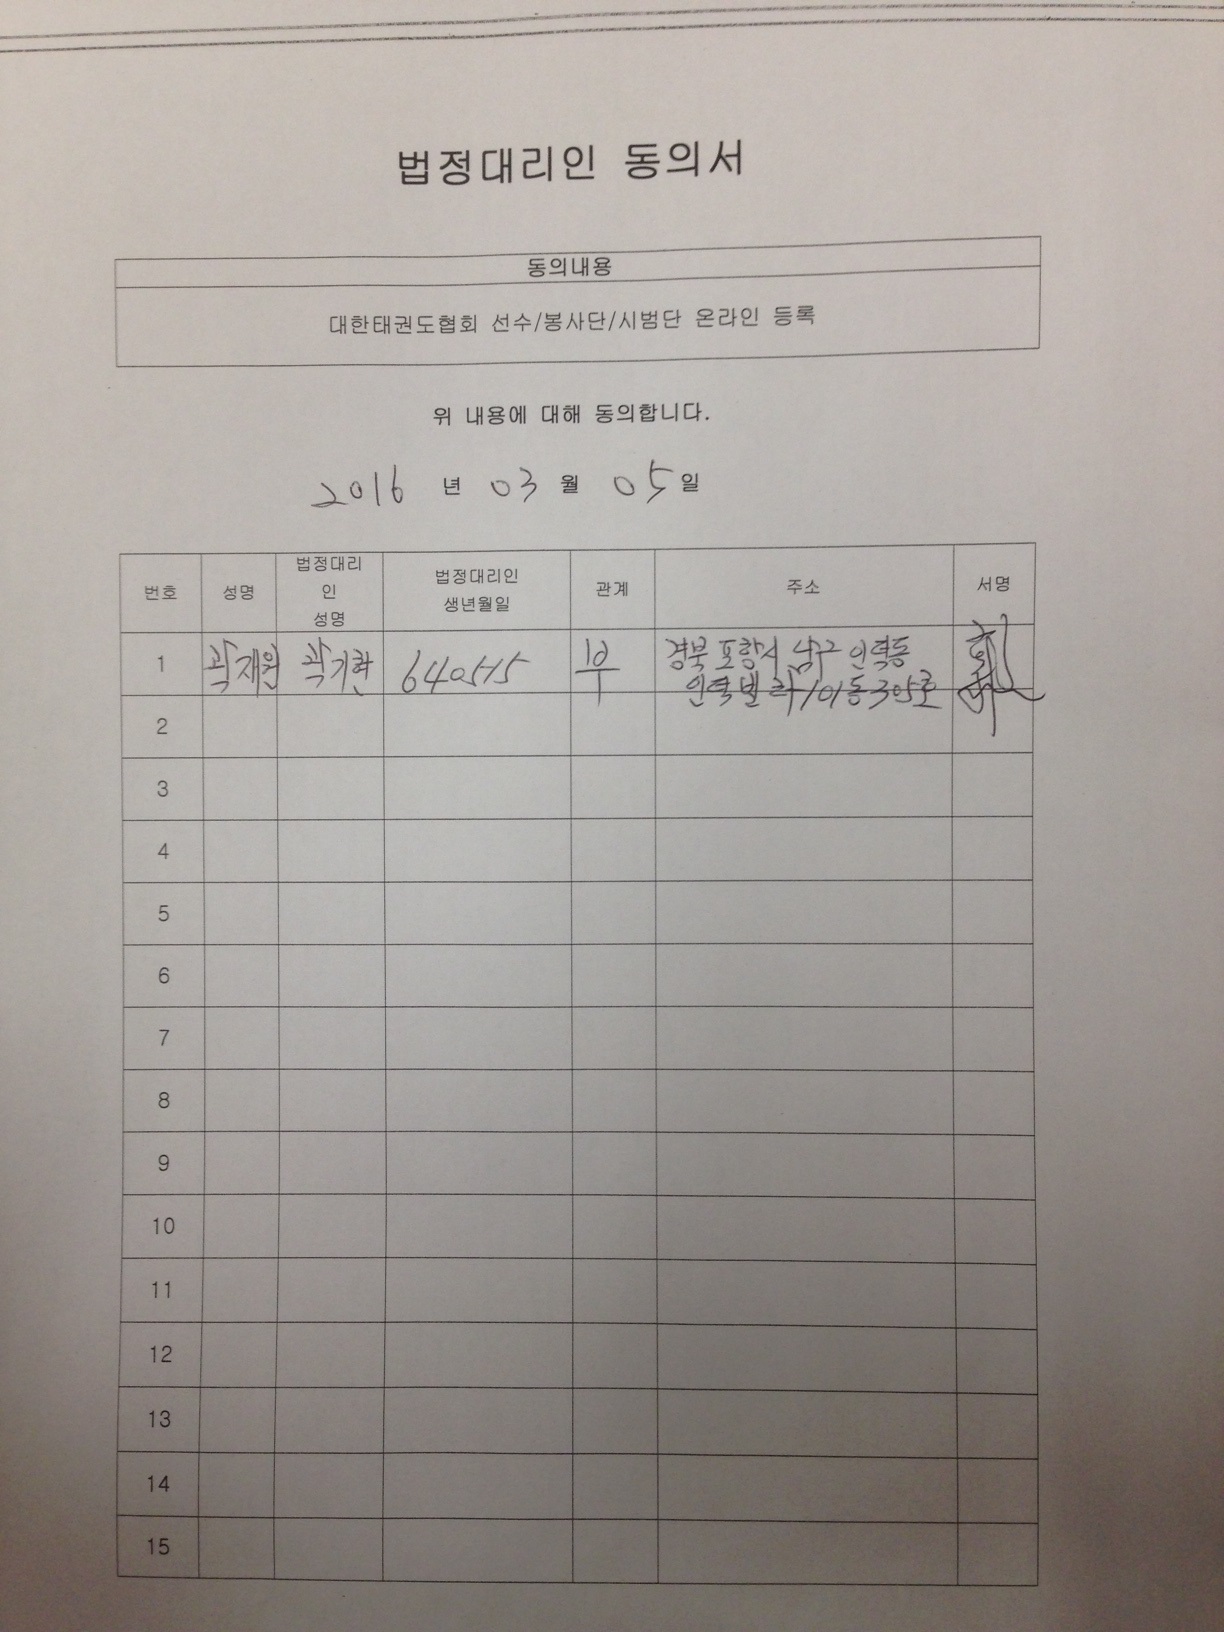 법정대리인 동의서
동의내용
대한태권도협회 선수/봉사단/시범단 온라인 등록
위 내용에 대해 동의합니다.
2016 년 03 월 05 일
번호 성명 법정대리인 성명 법정대리인 생년월일 관계 주소 서명
1 곽재원 곽기환 640515 부 경북 포항시 남구 인덕동
인덕빌라 101동 305호
2
3
4
5
6
7
8
9
10
11
12
13
14
15